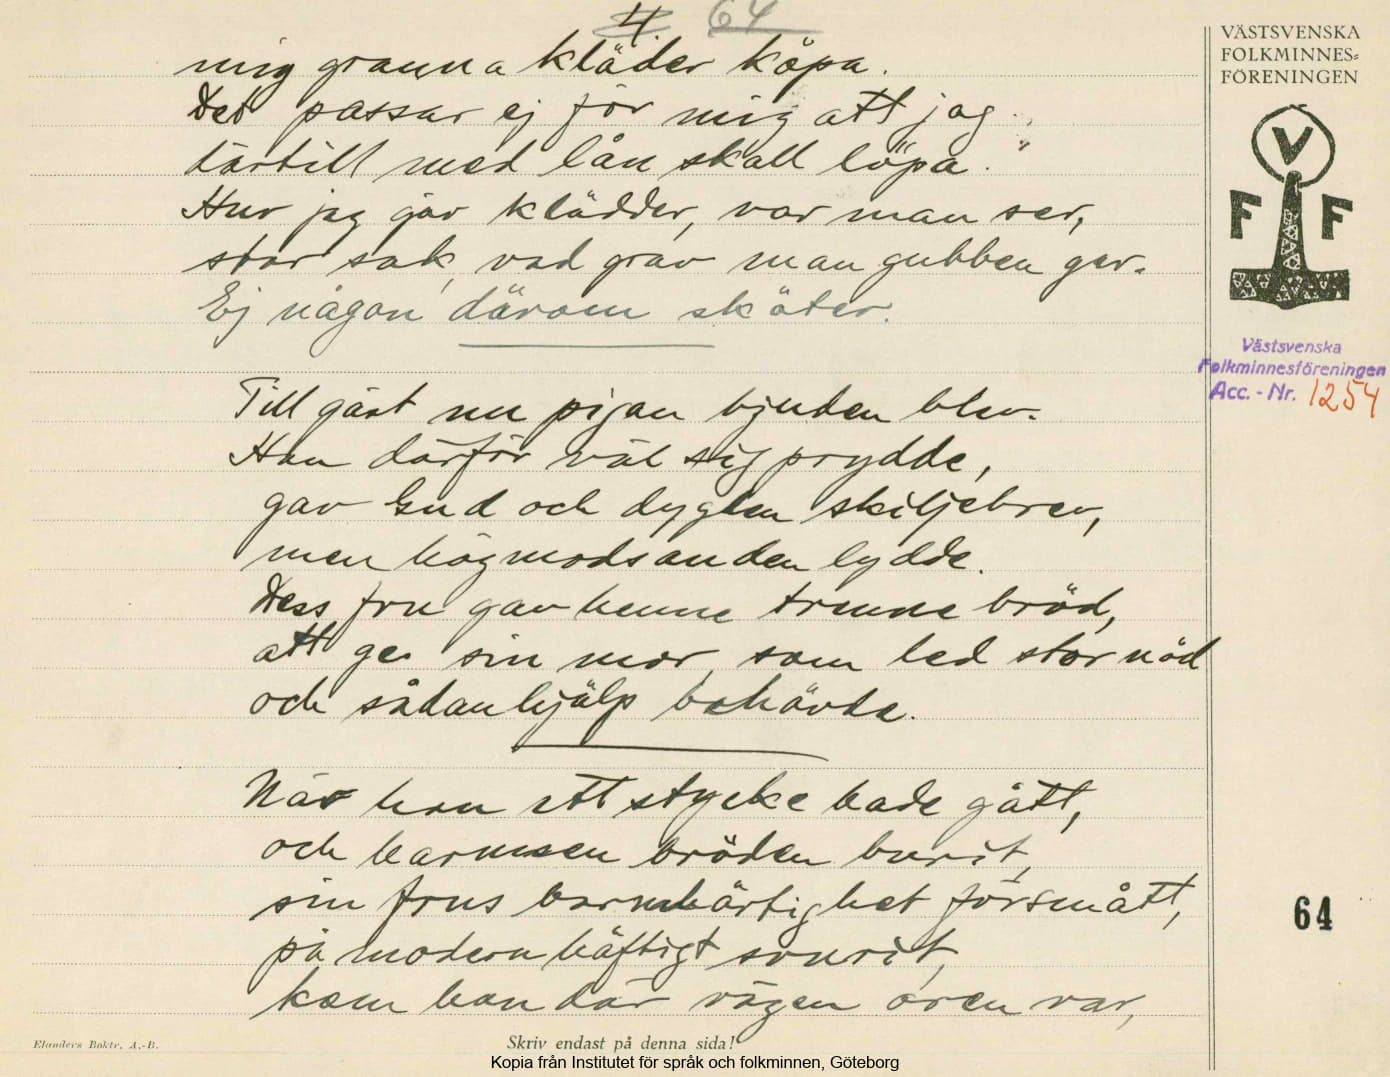 4. 64
mig granna kläder köpa.
Det passar ej för mig att jag
därtill med lån skall löpa."
Hur jag går klädder, var man ser,
stor sak, vad grav man gubben ger.
Ej någon därom sköter.
Till gäst nu pigan bjuden blev.
Hon därför väl sig prydde,
gav Gud och dygden skiljebrev,
men högmodsanden lydde.
Dess fru gav henne trenne bröd,
att ge sin mor, som led stor nöd
och sådan hjälp behövde.
När hon ett stycke hade gått,
och harmsen bröden burit,
sin frus barmhärtighet försmått,
på modern häftigt svurit,
kom hon där vägen oren var,
VÄSTSVENSKA
FOLKMINNES-
FÖRENINGEN
V
F F
Västsvenska
Folkminnesföreningen
Acc. - Nr. 1254
64
Elanders Boktr. A.-B.
Skriv endast på denna sida!
Kopia från Institutet för språk och folkminnen, Göteborg